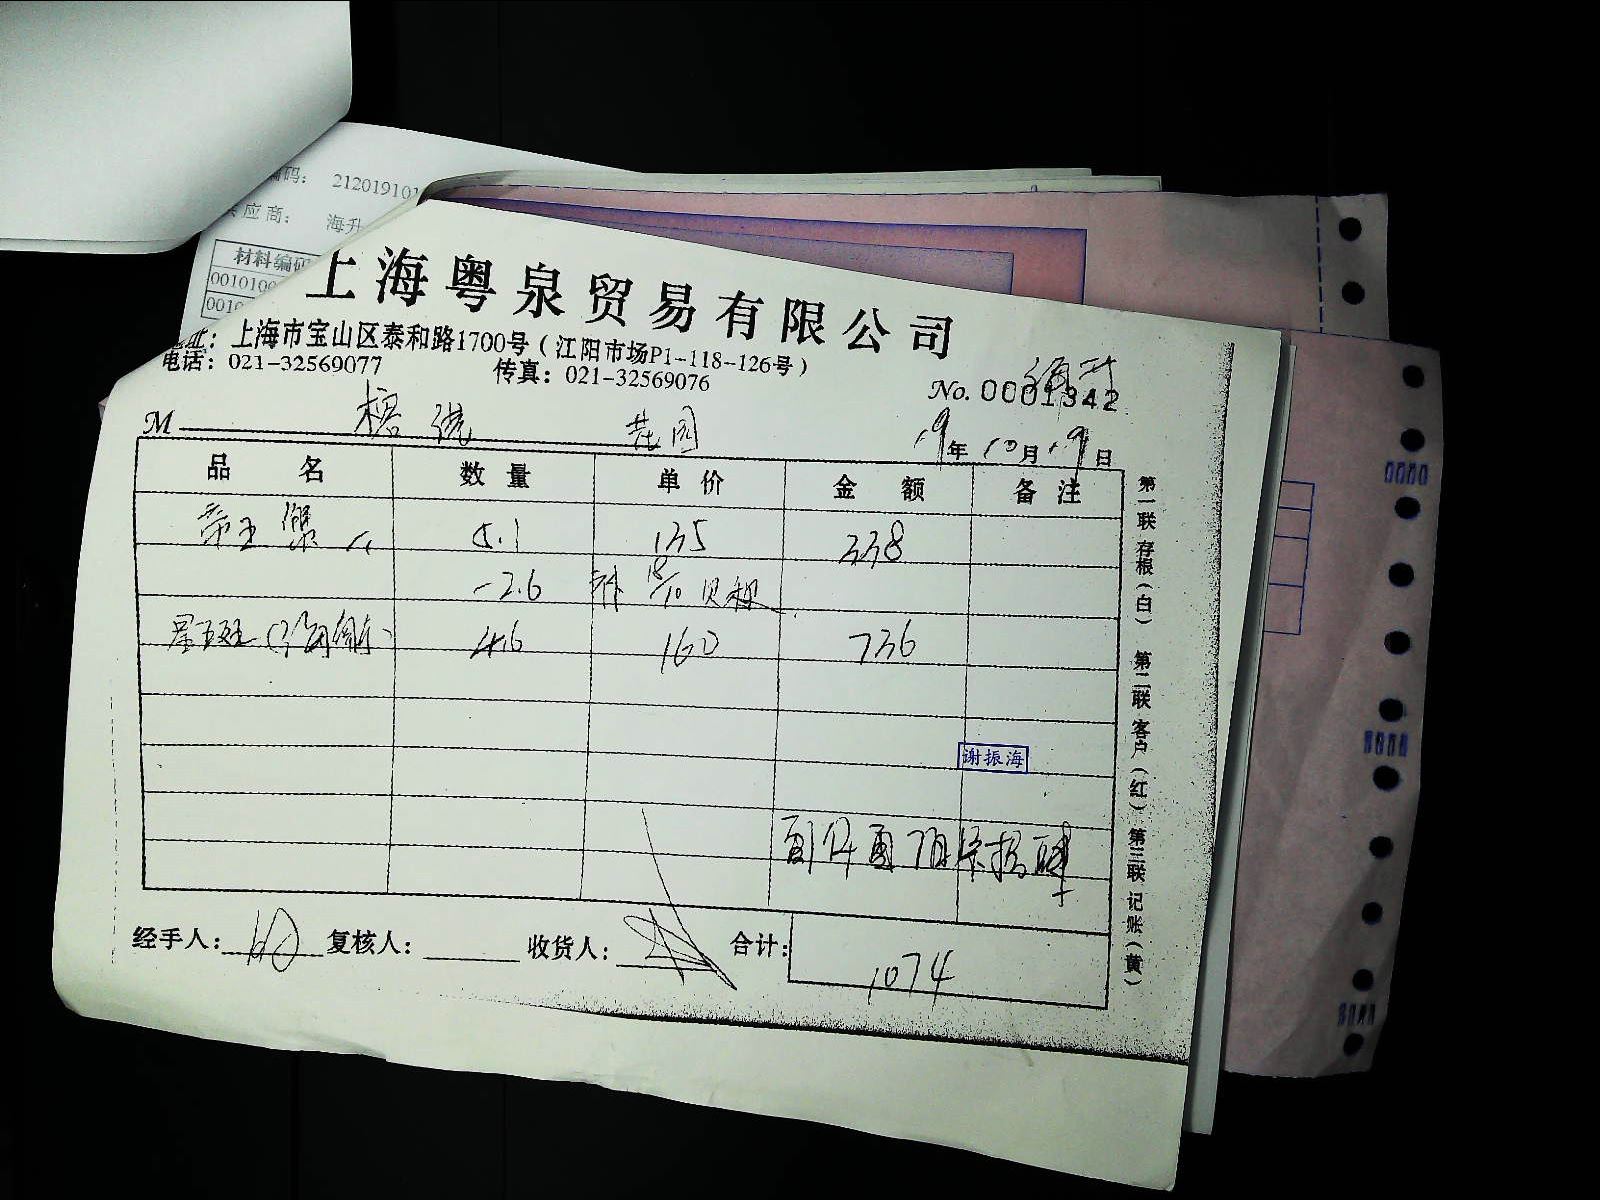 编码： 212019101
应商： 海升
材料编码
0010100
0010
上海粤泉贸易有限公司
地址：上海市宝山区泰和路1700号（江阳市场P1-118-126号）
电话：021-32569077 传真：021-32569076
海升
No. 0001342
M 榕港 花园 19年10月19日
品名 数量 单价 金额 备注
帝王蟹 5.1 135 338
-2.6
4.6 160 736
谢振海
合计： 1074
经手人： 复核人： 收货人：
第一联存根（白） 第二联客户（红） 第三联记账（黄）